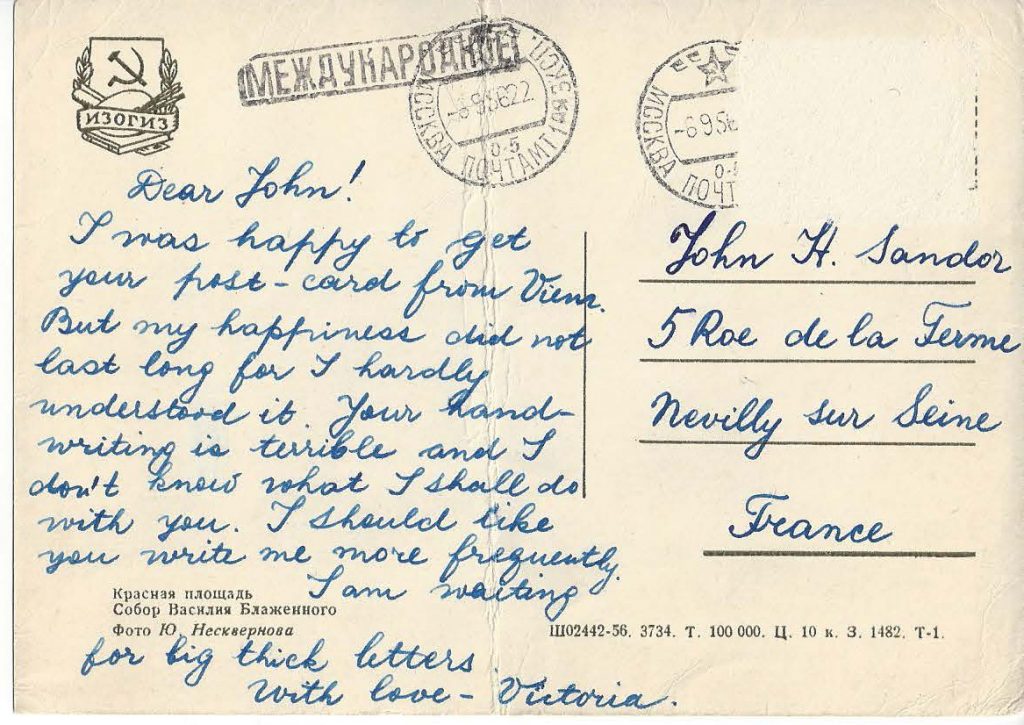 ИЗОГИЗ
МЕЖДУНАРОДНОЕ
МОСКВА ПОЧТАМТ
-6 9 56 22
МОСКВА ПОЧТ
-6 9 56
Dear John!
I was happy to get
your post-card from Vienn.
But my happiness did not
last long for I hardly
understood it. Your hand-
writing is terrible and I
don't know what I shall do
with you. I should like
you write me more frequently.
I am waiting
for big thick letters.
With love - Victoria.
John H. Sandor
5 Roe de la Ferme
Nevilly sur Seine
France
Красная площадь
Собор Василия Блаженного
Фото Ю. Несквернова
Ш02442-56. 3734. Т. 100 000. Ц. 10 к. З. 1482. Т-1.